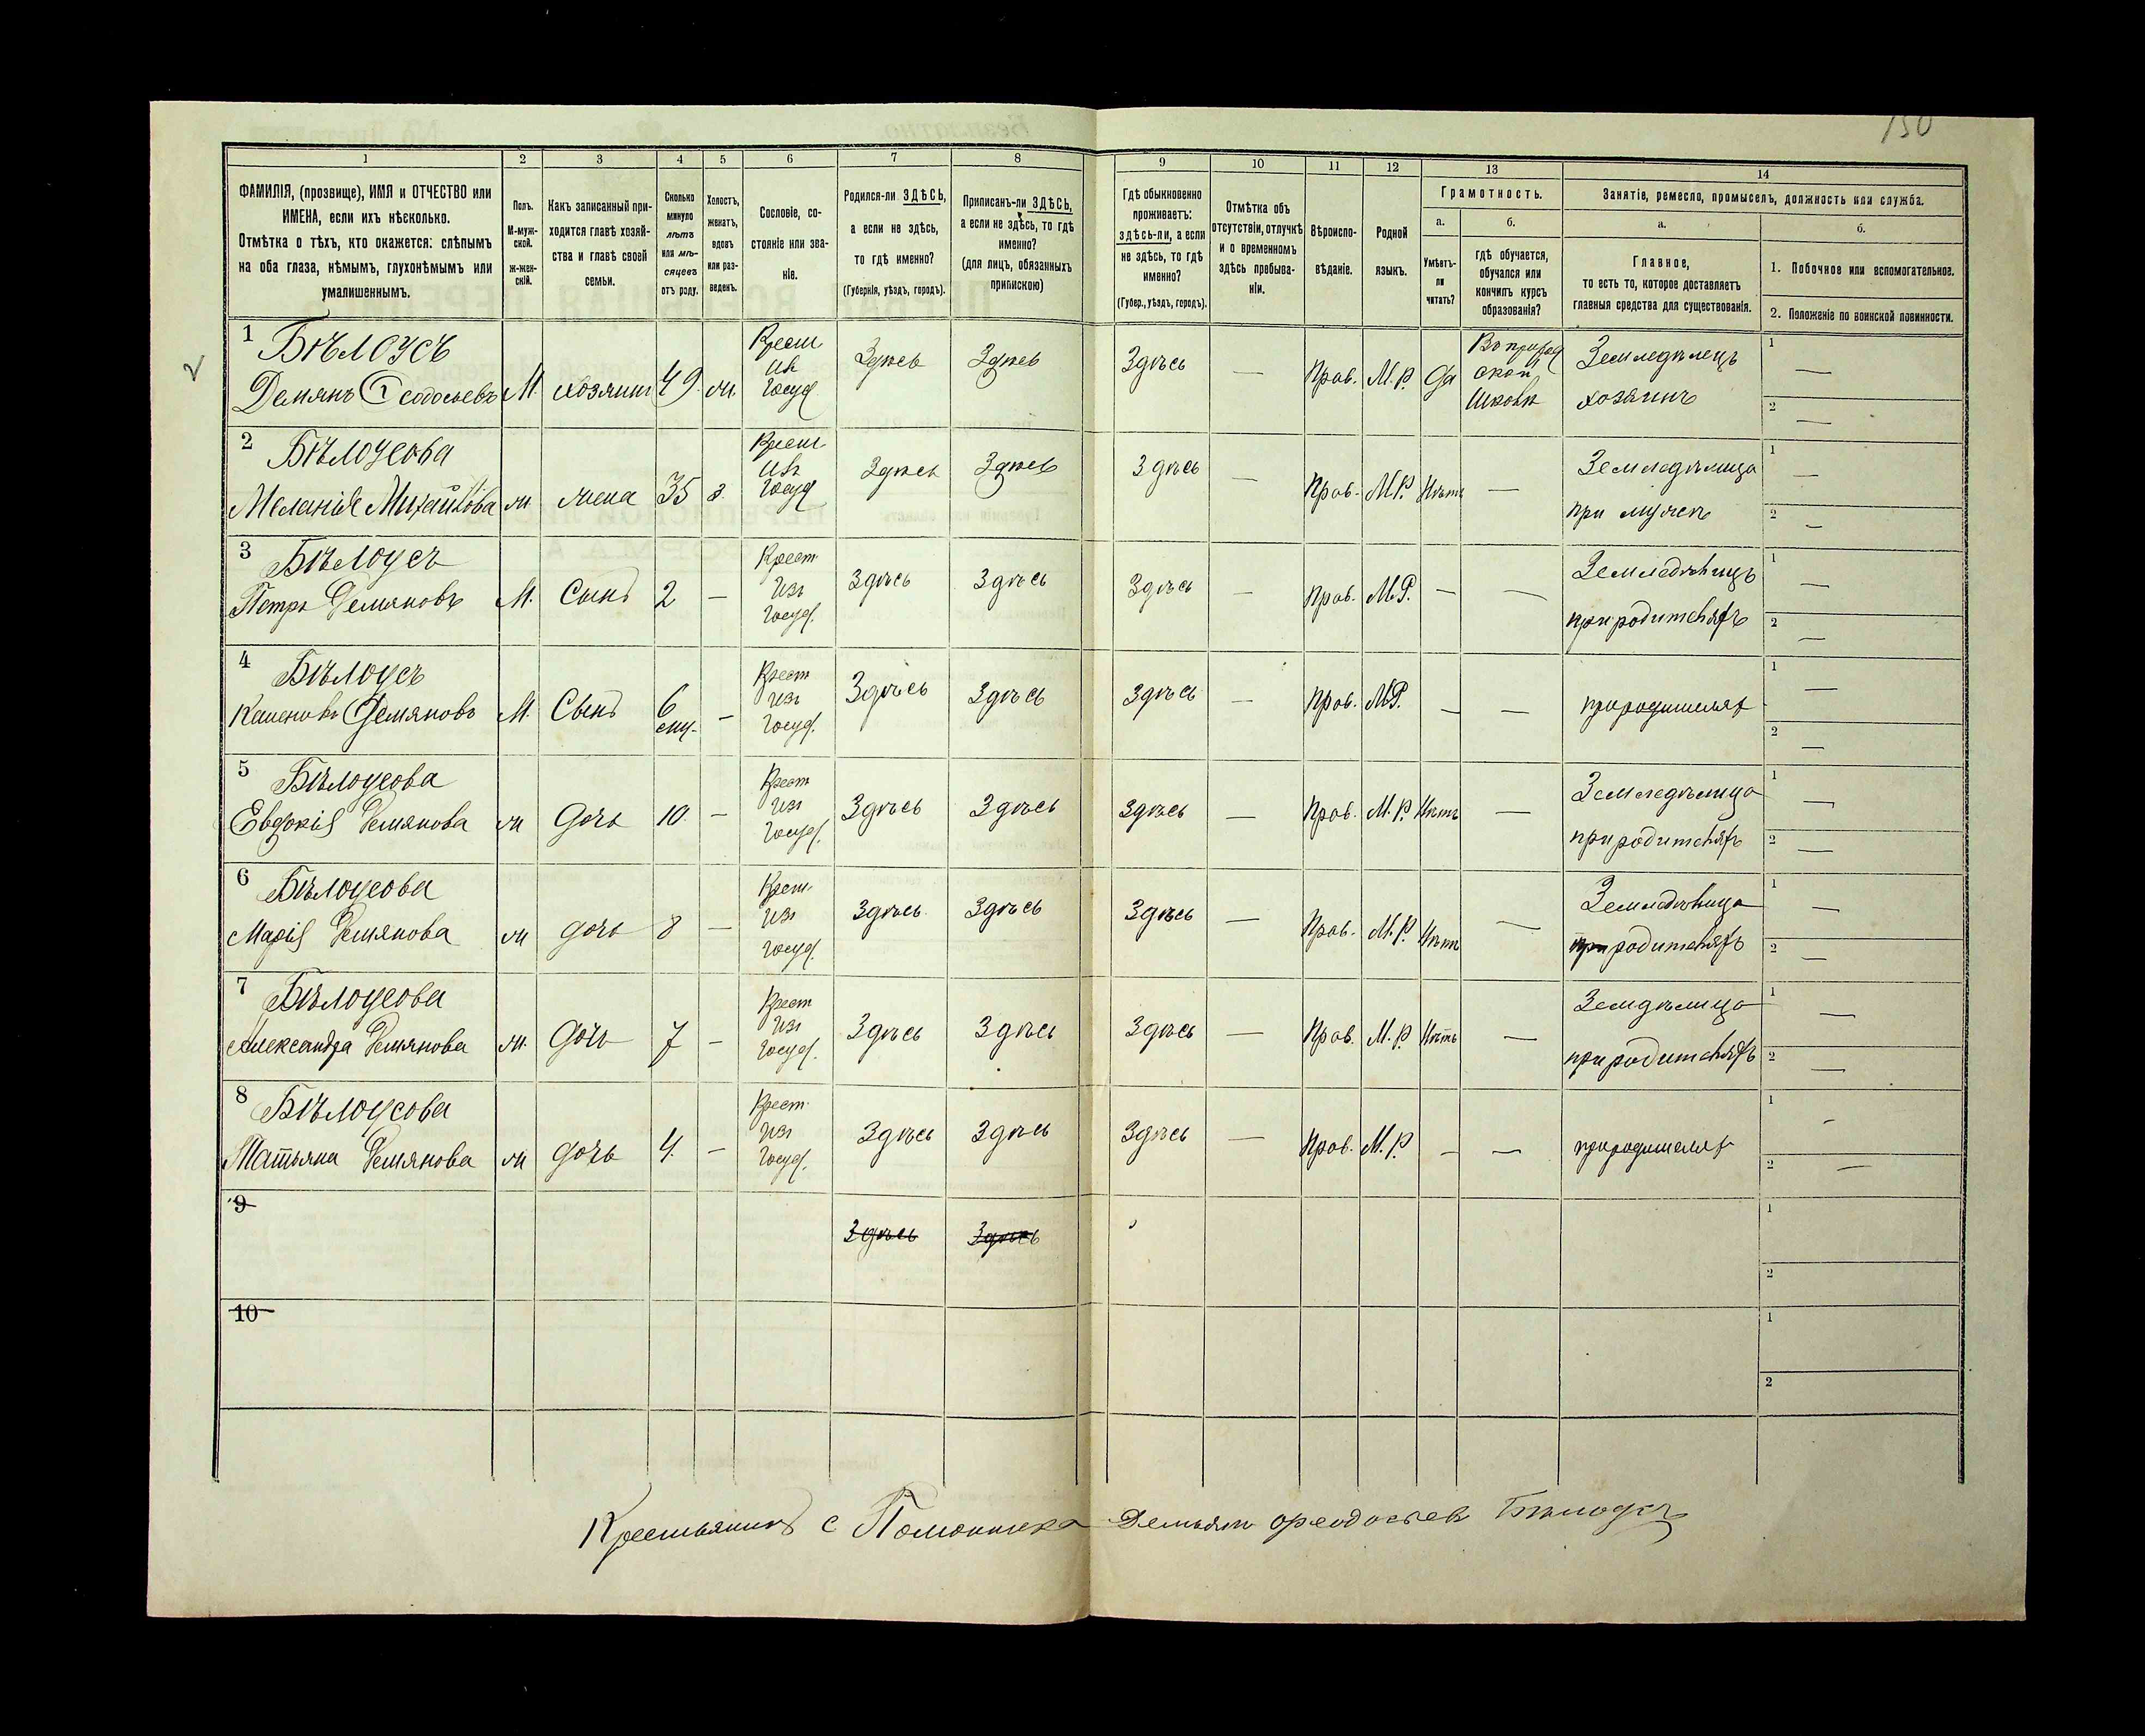 150
1 2 3 4 5 6 7 8 9 10 11 12 13 14
ФАМИЛІЯ, (прозвище), ИМЯ и ОТЧЕСТВО или
ИМЕНА, если ихъ нѣсколько.
Отмѣтка о тѣхъ, кто окажется: слѣпымъ
на оба глаза, нѣмымъ, глухонѣмымъ или
умалишеннымъ.
Полъ.
М-муж-
ской.
ж-жен-
скій.
Какъ записанный при-
ходится главѣ хозяй-
ства и главѣ своей
семьи.
Сколько
минуло
лѣтъ
или мѣ-
сяцевъ
отъ роду.
Холостъ,
женатъ,
вдовъ
или раз-
веденъ.
Сословіе, со-
стояніе или зва-
ніе.
Родился-ли ЗДѢСЬ,
а если не здѣсь,
то гдѣ именно?
(Губернія, уѣздъ, городъ).
Приписанъ-ли ЗДѢСЬ,
а если не здѣсь, то гдѣ
именно?
(для лицъ, обязанныхъ
припискою)
Гдѣ обыкновенно
проживаетъ:
здѣсь-ли, а если
не здѣсь, то гдѣ
именно?
(Губер., уѣздъ, городъ).
Отмѣтка объ
отсутствіи, отлучкѣ
и о временномъ
здѣсь пребыва-
ніи.
Вѣроиспо-
вѣданіе.
Родной
языкъ.
Грамотность.
а.
Умѣетъ-
ли
читать?
б.
гдѣ обучается,
обучался или
кончилъ курсъ
образованія?
Занятіе, ремесло, промыселъ, должность или служба.
а.
Главное,
то есть то, которое доставляетъ
главныя средства для существованія.
б.
1. Побочное или вспомогательное.
2. Положеніе по воинской повинности.
1 Бѣлоусъ
Демянъ Ѳеодосьевъ М. хозяинъ 49. ж. Крест. изъ Госуд. Здѣсь Здѣсь Здѣсь — Прав. М.Р. Да Земледѣлецъ хозяинъ 1 — 2 —
2 Бѣлоусова
Меланія Михайлова ж жена 35 з. Крест. изъ Госуд Здѣсь Здѣсь Здѣсь — Прав. М.Р. Нѣтъ — Земледѣлица при мужѣ 1 — 2 —
3 Бѣлоусъ
Петръ Демяновъ М. Сынъ 2 — Крест. изъ Госуд. Здѣсь Здѣсь Здѣсь — Прав. М.Р. — — Земледѣлецъ при родителяхъ 1 — 2 —
4 Бѣлоусъ
Демяновъ М. Сынъ 6 — Крест изъ Госуд. Здѣсь Здѣсь Здѣсь — Прав. М.Р. — — при родителях 1 — 2 —
5 Бѣлоусова
Евдокія Демянова ж дочь 10. — Крест изъ Госуд. Здѣсь Здѣсь Здѣсь — Прав. М.Р. Нѣтъ — Земледѣлица при родителяхъ 1 — 2 —
6 Бѣлоусова
Марія Демянова ж дочь 8 — Крест. изъ Госуд. Здѣсь Здѣсь Здѣсь — Прав. М.Р. Нѣтъ — Земледѣлица при родителяхъ 1 — 2 —
7 Бѣлоусова
Александра Демянова ж. дочь 7 — Крест изъ Госуд. Здѣсь Здѣсь Здѣсь — Прав. М.Р. Нѣтъ — Земдѣлица при родителяхъ 1 — 2 —
8 Бѣлоусова
Татьяна Демянова ж дочь 4. — Крест. изъ Госуд. Здѣсь Здѣсь Здѣсь — Прав. М.Р. — — при родителях 1 — 2 —
9 Здѣсь Здѣсь 1 2
10 1 2
Крестьянинъ с Демьян Феодосьев Бѣлоусъ